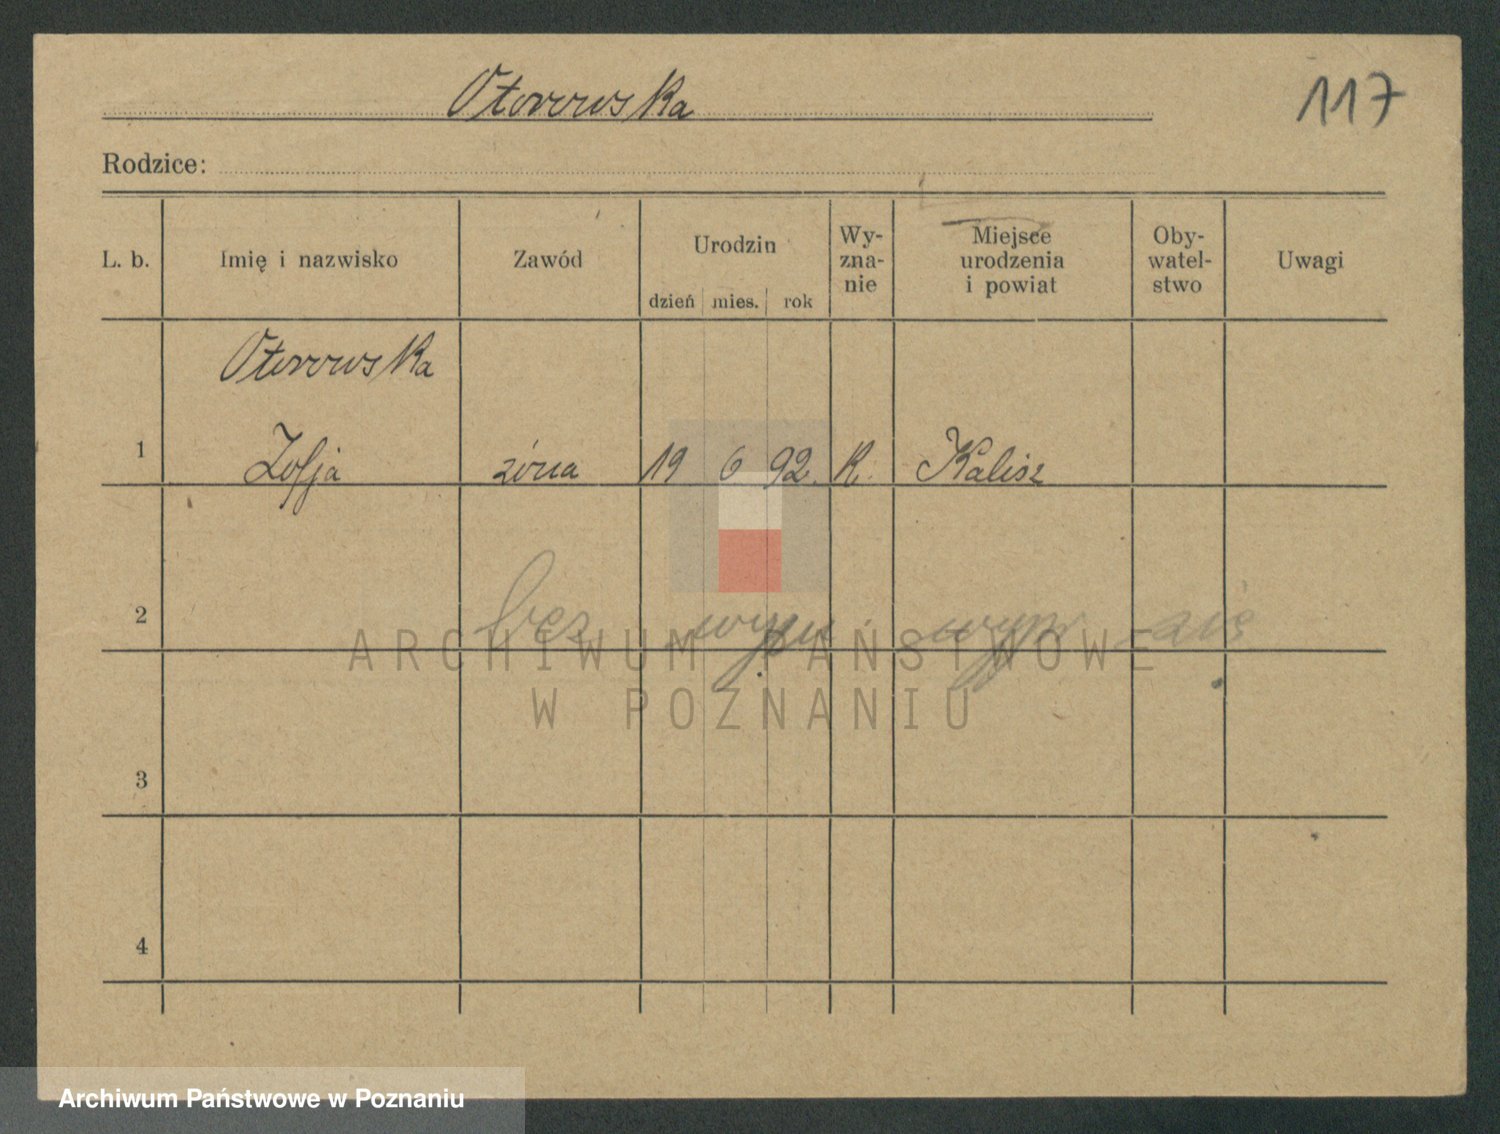 Otorowska
117
Rodzice:
L. b.
Imię i nazwisko
Zawód
Urodzin
dzień mies. rok
Wy-
zna-
nie
Miejsce
urodzenia
i powiat
Oby-
watel-
stwo
Uwagi
Otorowska
1 Zofja żona 19 6 92. K. Kalisz
2 bez się
3
4
ARCHIWUM PAŃSTWOWE
W POZNANIU
Archiwum Państwowe w Poznaniu